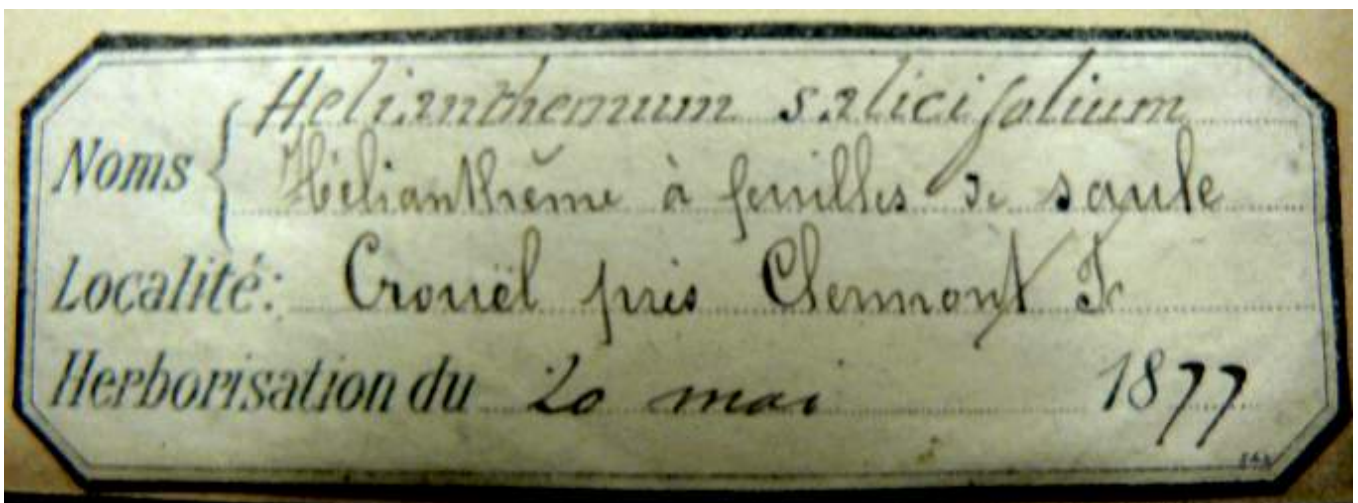 Helianthemum salicifolium
Noms { Hélianthème à feuilles de saule
Localité: Crouël près Clermont Fr
Herborisation du 20 mai 1877